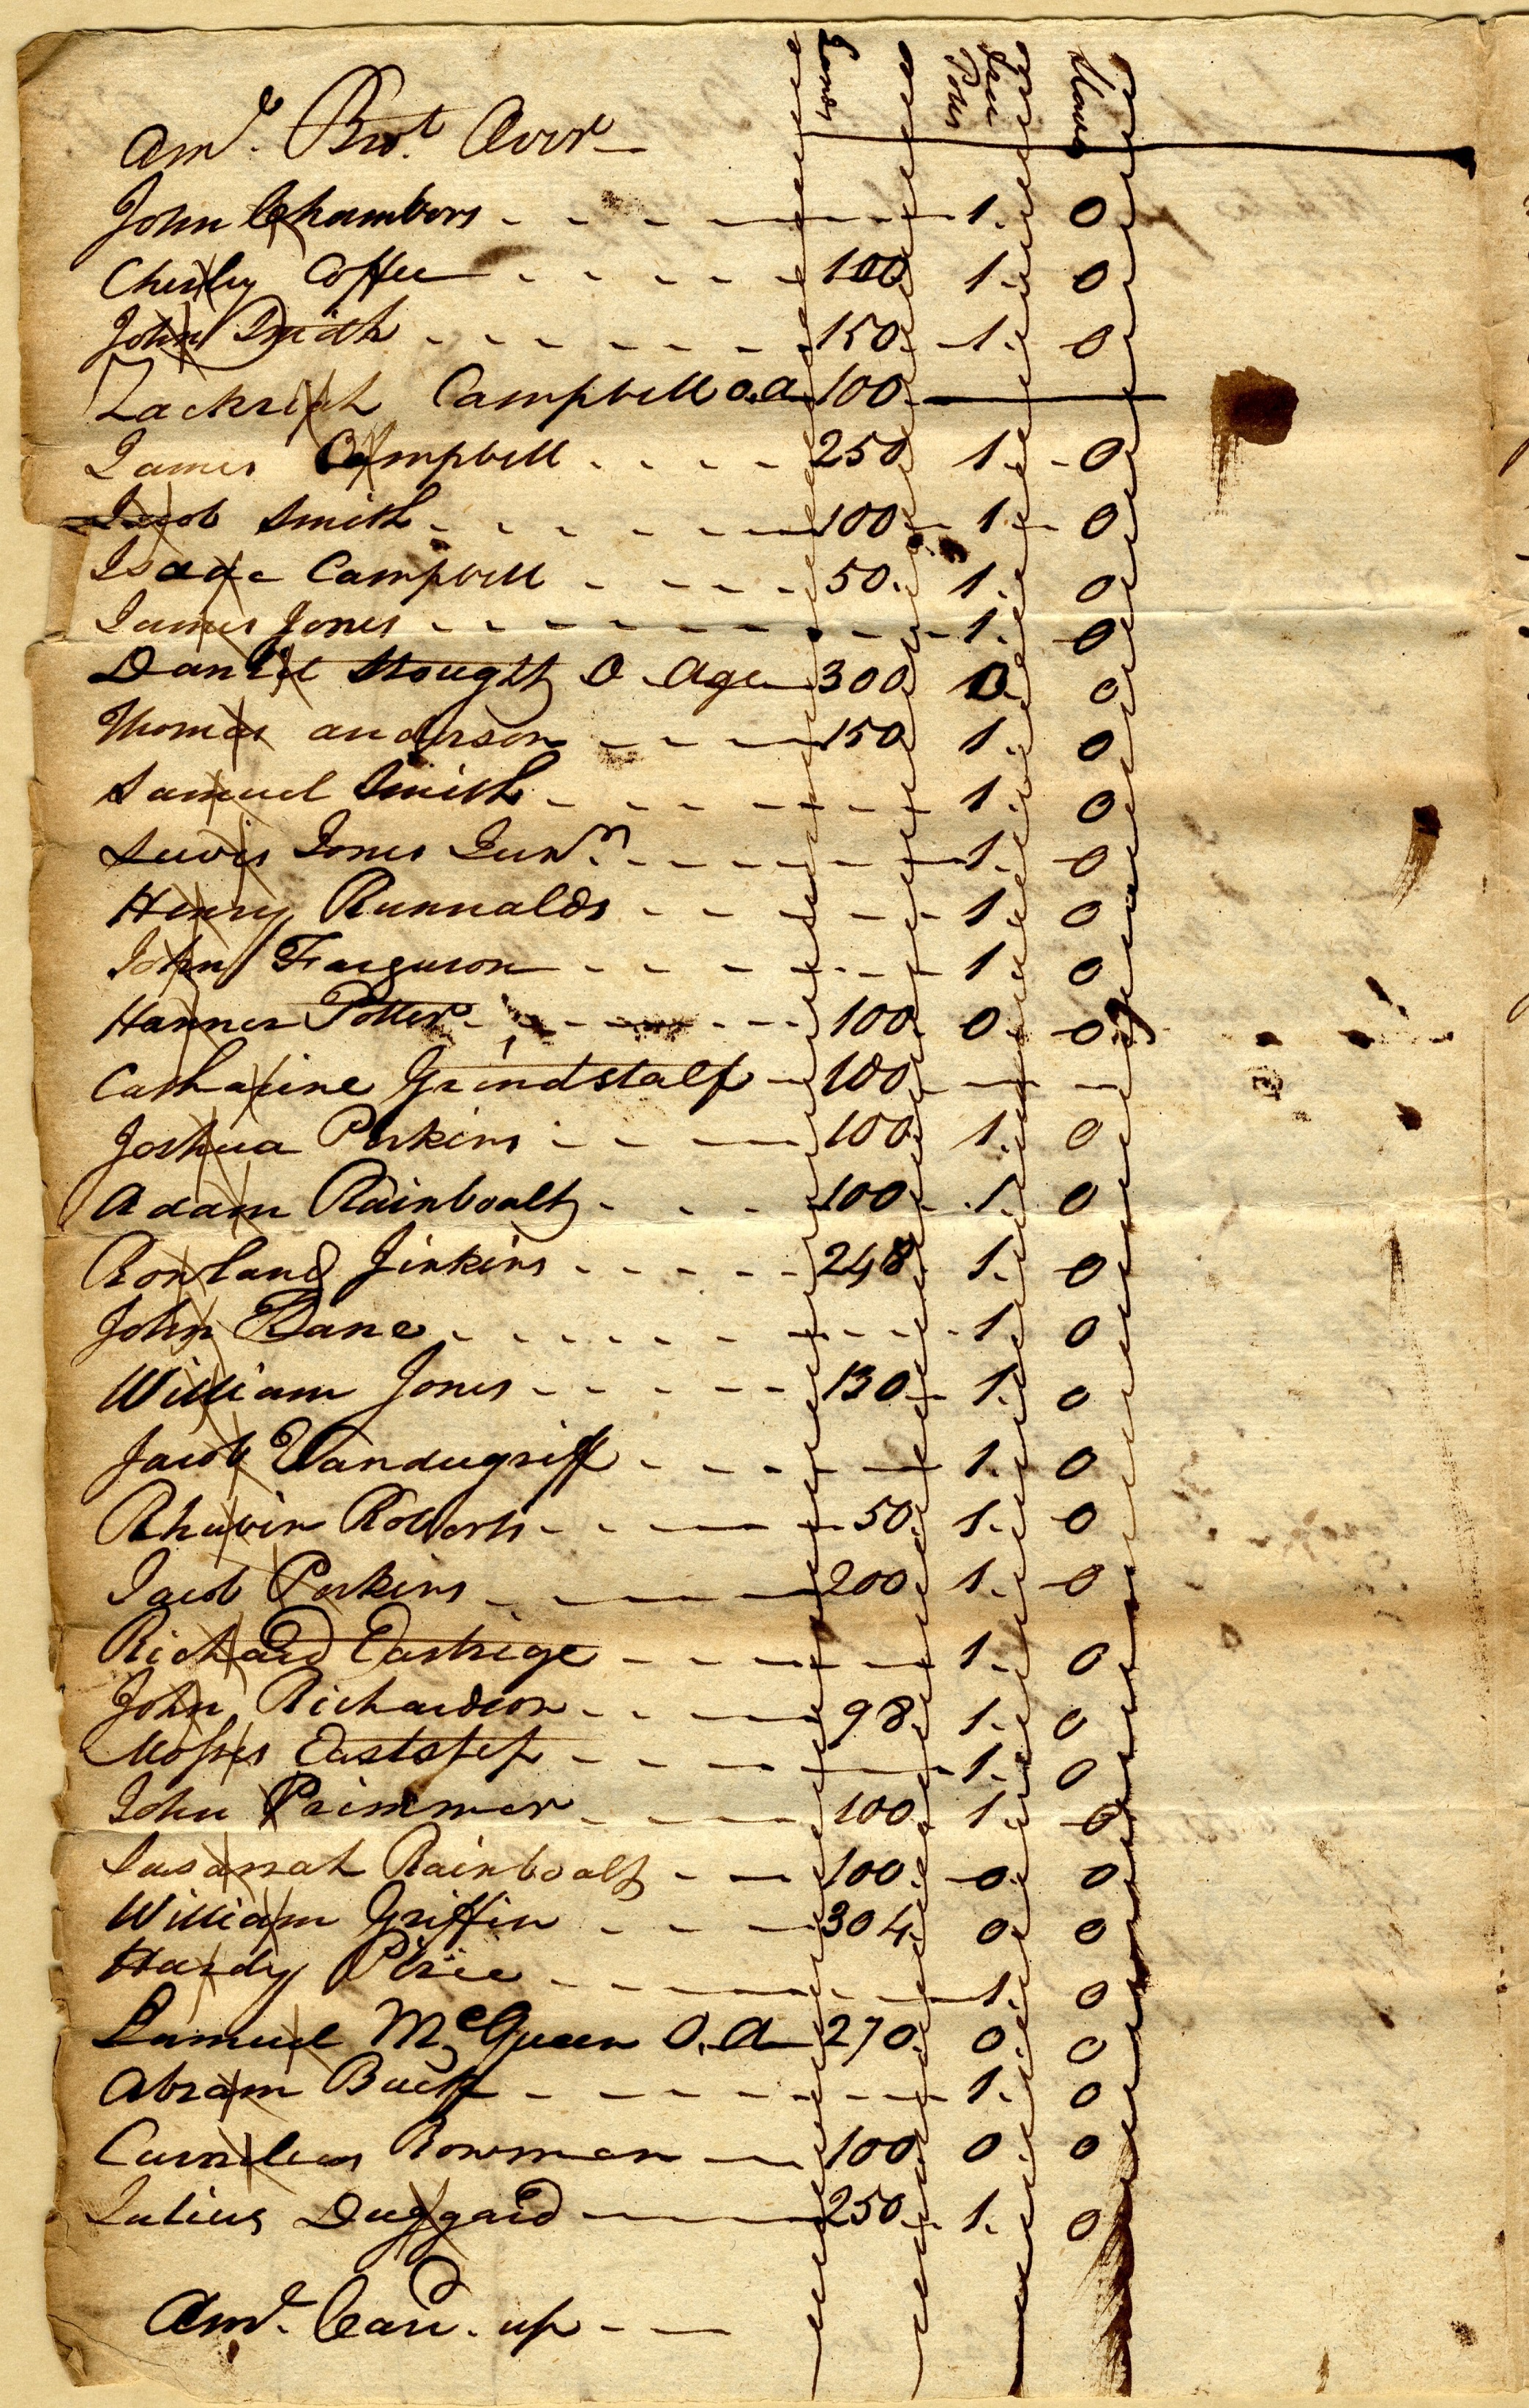 Land Free Poles Slaves
Amt. Brot. Over
John Chambers 1. 0
Chesley Coffee 100 1. 0
John Smith 150. 1. 0
Zackriah Campbell o.a 100.
James Campbell 250 1. 0
Jacob Smith 100. 1. 0
Isaac Campbell 50. 1. 0
James Jones 1. 0
Daniel Stought O. Age 300 0. 0
Thomas anderson 150 1. 0
Samuel Smith 1. 0
Lewis Jones Junr. 1. 0
Henry Runnalds 1. 0
John Farguson 1 0
Hanner Potter 100. 0. 0
Catharine Grindstalf 100
Joshua Perkins 100. 1. 0
Adam Rainboalt 100. 1. 0
Rowland Jinkins 248. 1. 0
John Dane 1. 0
William Jones 130. 1. 0
Jacob Vandugriff 1. 0
Rhubin Roberts 50. 1. 0
Jacob Perkins 200. 1. 0
Richard Eastrige 1. 0
John Richardson 98. 1. 0
Moses Eaststep 1. 0
John Primmer 100. 1. 0
Susanah Rainboalt 100. 0. 0
William Griffin 304. 0 0
Hardy Price 1. 0
Samuel McQueen O.A 270. 0. 0
Abram Buck 1. 0
Curnleus Bowman 100 0. 0
Julius Duggard 250. 1. 0
Amt. Card. up